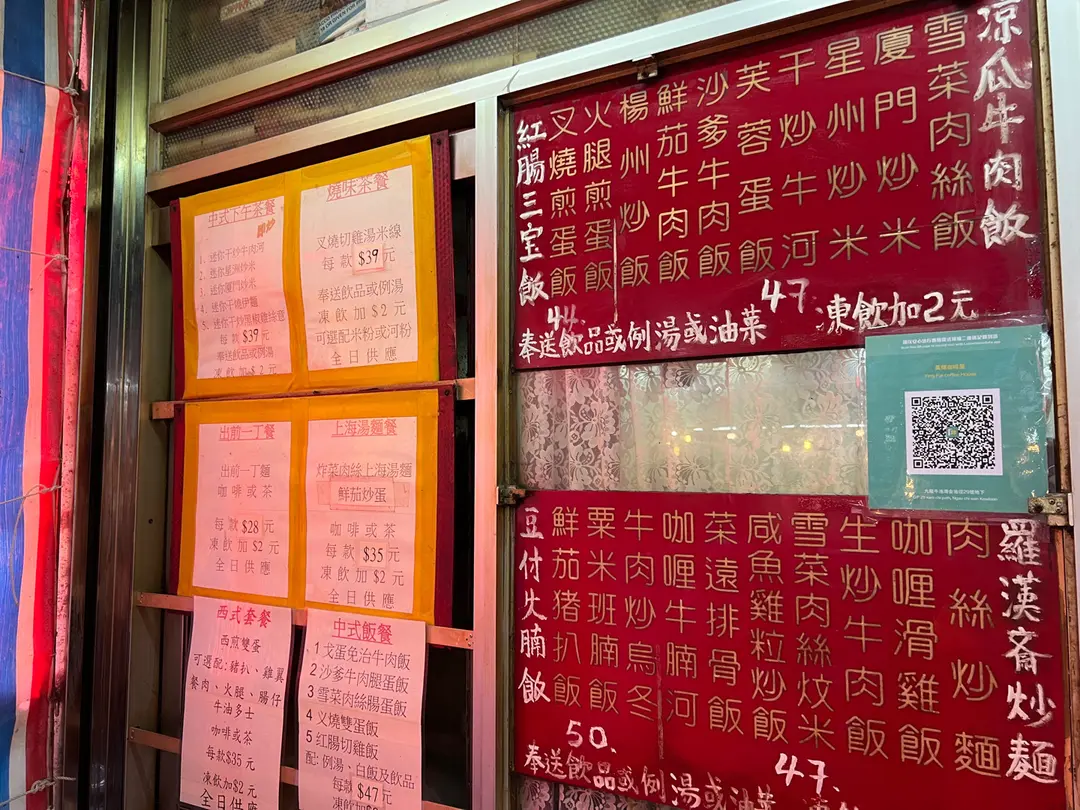 中式下午茶餐
即炒
1. 迷你干炒牛肉河
2. 迷你星洲炒米
3. 迷你廈門炒米
4. 迷你干燒伊麵
5. 迷你干炒黑椒雞絲意
每款$39元
奉送飲品或例湯
凍飲加$2元
燒味茶餐
叉燒切雞湯米線
每款$39元
奉送飲品或例湯
凍飲加$2元
可選配米粉或河粉
全日供應
出前一丁餐
出前一丁麵
咖啡或茶
每款$28元
凍飲加$2元
全日供應
上海湯麵餐
炸菜肉絲上海湯麵
鮮茄炒蛋
咖啡或茶
每款$35元
凍飲加$2元
全日供應
西式套餐
西煎雙蛋
可選配:豬扒、雞翼
餐肉、火腿、腸仔
牛油多士
咖啡或茶
每款$35元
凍飲加$2元
全日供應
中式飯餐
1 戈蛋免治牛肉飯
2 沙爹牛肉腿蛋飯
3 雪菜肉絲腸蛋飯
4 叉燒雙蛋飯
5 紅腸切雞飯
配: 例湯、白飯及飲品
每款$47元
凍飲加$2
涼瓜牛肉飯
雪菜肉絲飯
廈門炒米
星州炒米
干炒牛河
芙蓉蛋飯
沙爹牛肉飯
鮮茄牛肉飯
楊州炒飯
火腿煎蛋飯
叉燒煎蛋飯
紅腸三宝飯
44.
47.
奉送飲品或例湯或油菜
凍飲加2元
Ping Fai Coffee House
羅漢斋炒麵
肉絲炒麵
咖喱滑雞飯
生炒牛肉飯
雪菜肉絲炆米
咸魚雞粒炒飯
菜遠排骨飯
咖喱牛腩河
牛肉炒烏冬
粟米班腩飯
鮮茄猪扒飯
豆付火腩飯
50.
47.
奉送飲品或例湯或油菜